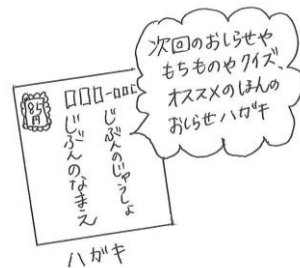 次回のおしらせや
もちものやクイズ、
オススメのほんの
おしらせハガキ
85
円
□□□-□□□
じぶんのじゅうしょ
じぶんのなまえ
ハガキ